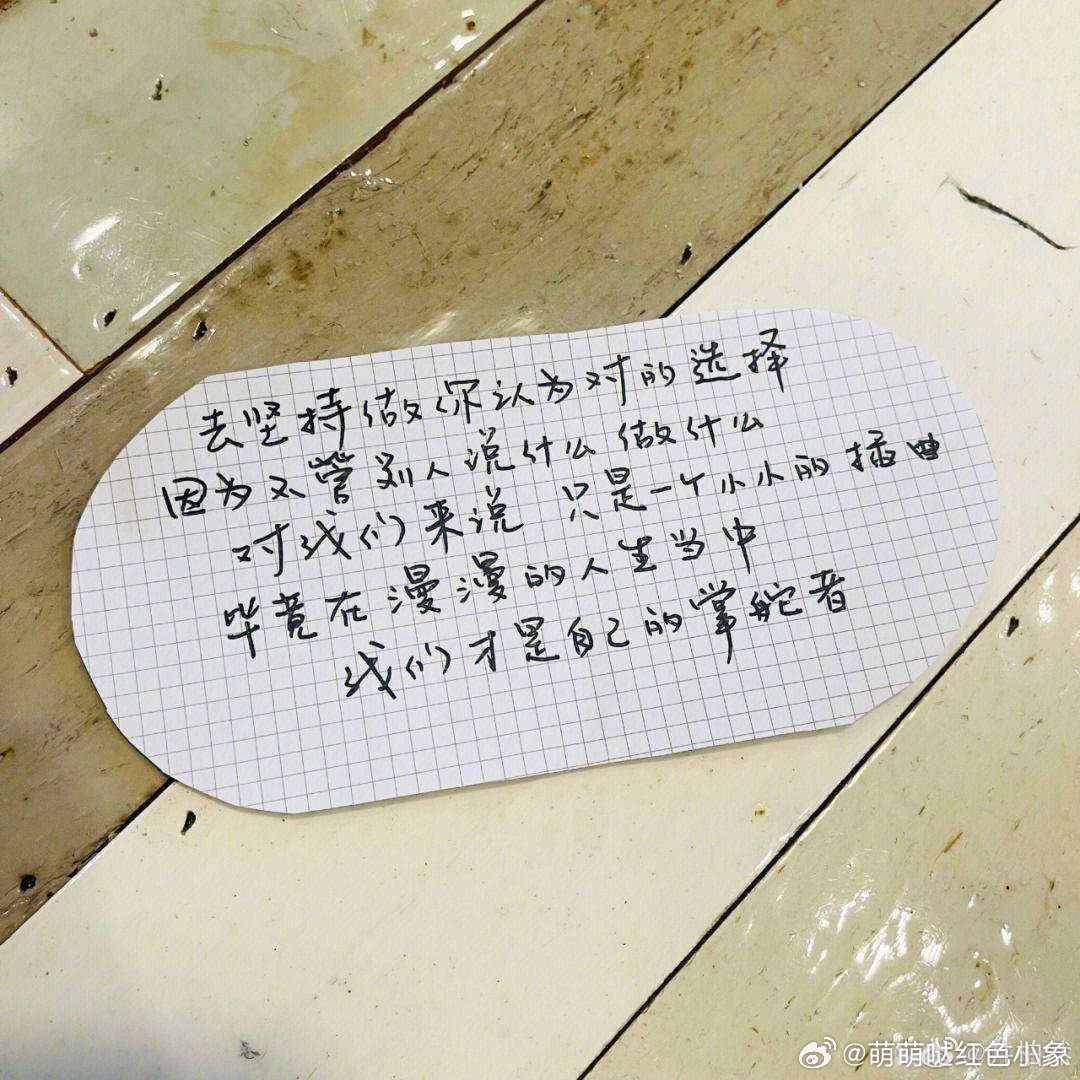 去坚持做你认为对的选择
因为不管别人说什么做什么
对我们来说 只是一个小小的插曲
毕竟在漫漫的人生当中
我们才是自己的掌舵者
@萌萌哒红色小象